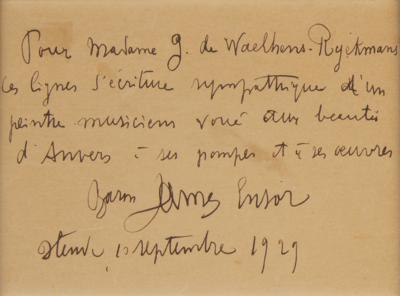 Pour Madame G. de Waelhens-Ryckmans
ces lignes d'écriture sympathique d'un
peintre musicien voué aux beautés
d'Anvers à ses pompes et à ses œuvres
Baron James Ensor
Ostende 10 septembre 1929